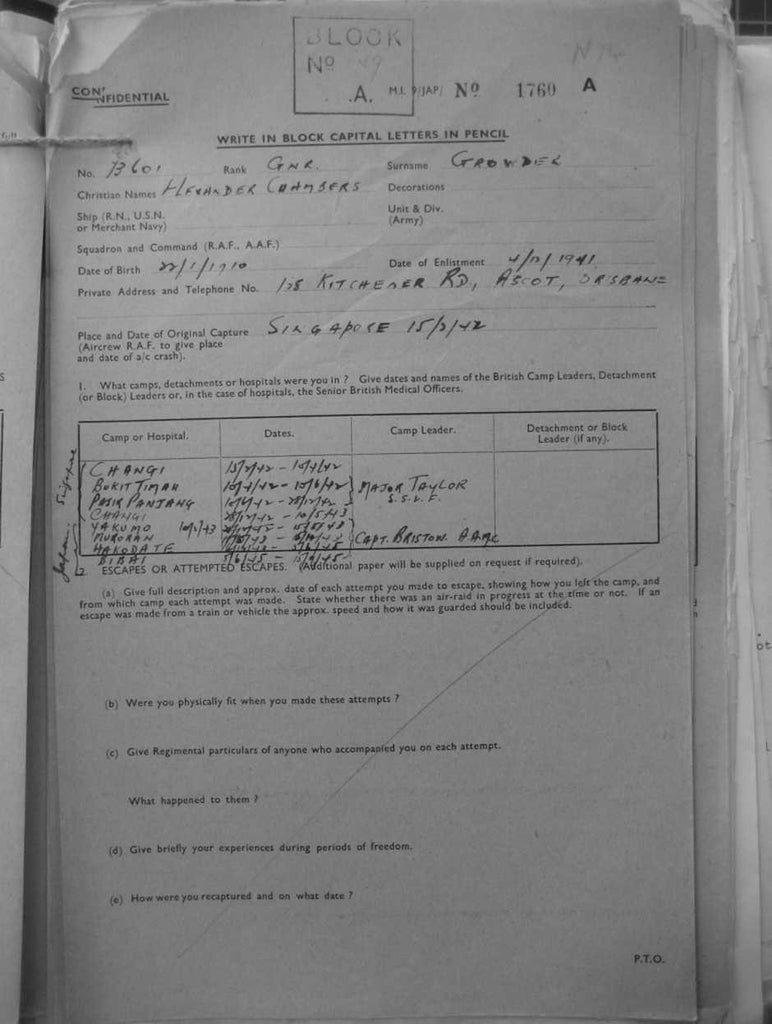 BLOCK
No 49
.A.
M.I. 9/JAP/ No 1760 A
CONFIDENTIAL
WRITE IN BLOCK CAPITAL LETTERS IN PENCIL
No. 13601 Rank GNR. Surname GROWDER
Christian Names CHAMBERS Decorations
Ship (R.N., U.S.N. or Merchant Navy)
Unit & Div. (Army)
Squadron and Command (R.A.F., A.A.F.)
Date of Birth 22/1/1910 Date of Enlistment 1941
Private Address and Telephone No. KITCHENER RD, ASCOT, BRISBANE
Place and Date of Original Capture SINGAPORE 15/2/42
(Aircrew R.A.F. to give place
and date of a/c crash).
1. What camps, detachments or hospitals were you in ? Give dates and names of the British Camp Leaders, Detachment
(or Block) Leaders or, in the case of hospitals, the Senior British Medical Officers.
Camp or Hospital. Dates. Camp Leader. Detachment or Block
Leader (if any).
Singapore
CHANGI 15/2/42 - 10/4/42
BUKIT TIMAH 10/4/42 - 10/6/42 MAJOR TAYLOR
PASIR PANJANG 10/6/42 - 28/12/42 S.S.V.F.
CHANGI 28/12/42 - 10/5/43
Japan
YAKUMO
MURORAN CAPT. BRISTOW. AAMC
HAKODATE
BIBAI
2. ESCAPES OR ATTEMPTED ESCAPES. (Additional paper will be supplied on request if required).
(a) Give full description and approx. date of each attempt you made to escape, showing how you left the camp, and
from which camp each attempt was made. State whether there was an air-raid in progress at the time or not. If an
escape was made from a train or vehicle the approx. speed and how it was guarded should be included.
(b) Were you physically fit when you made these attempts ?
(c) Give Regimental particulars of anyone who accompanied you on each attempt.
What happened to them ?
(d) Give briefly your experiences during periods of freedom.
(e) How were you recaptured and on what date ?
P.T.O.